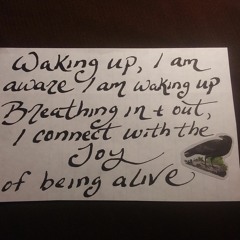 Waking up, I am
aware I am waking up
Breathing in + out,
I connect with the
Joy
of being alive